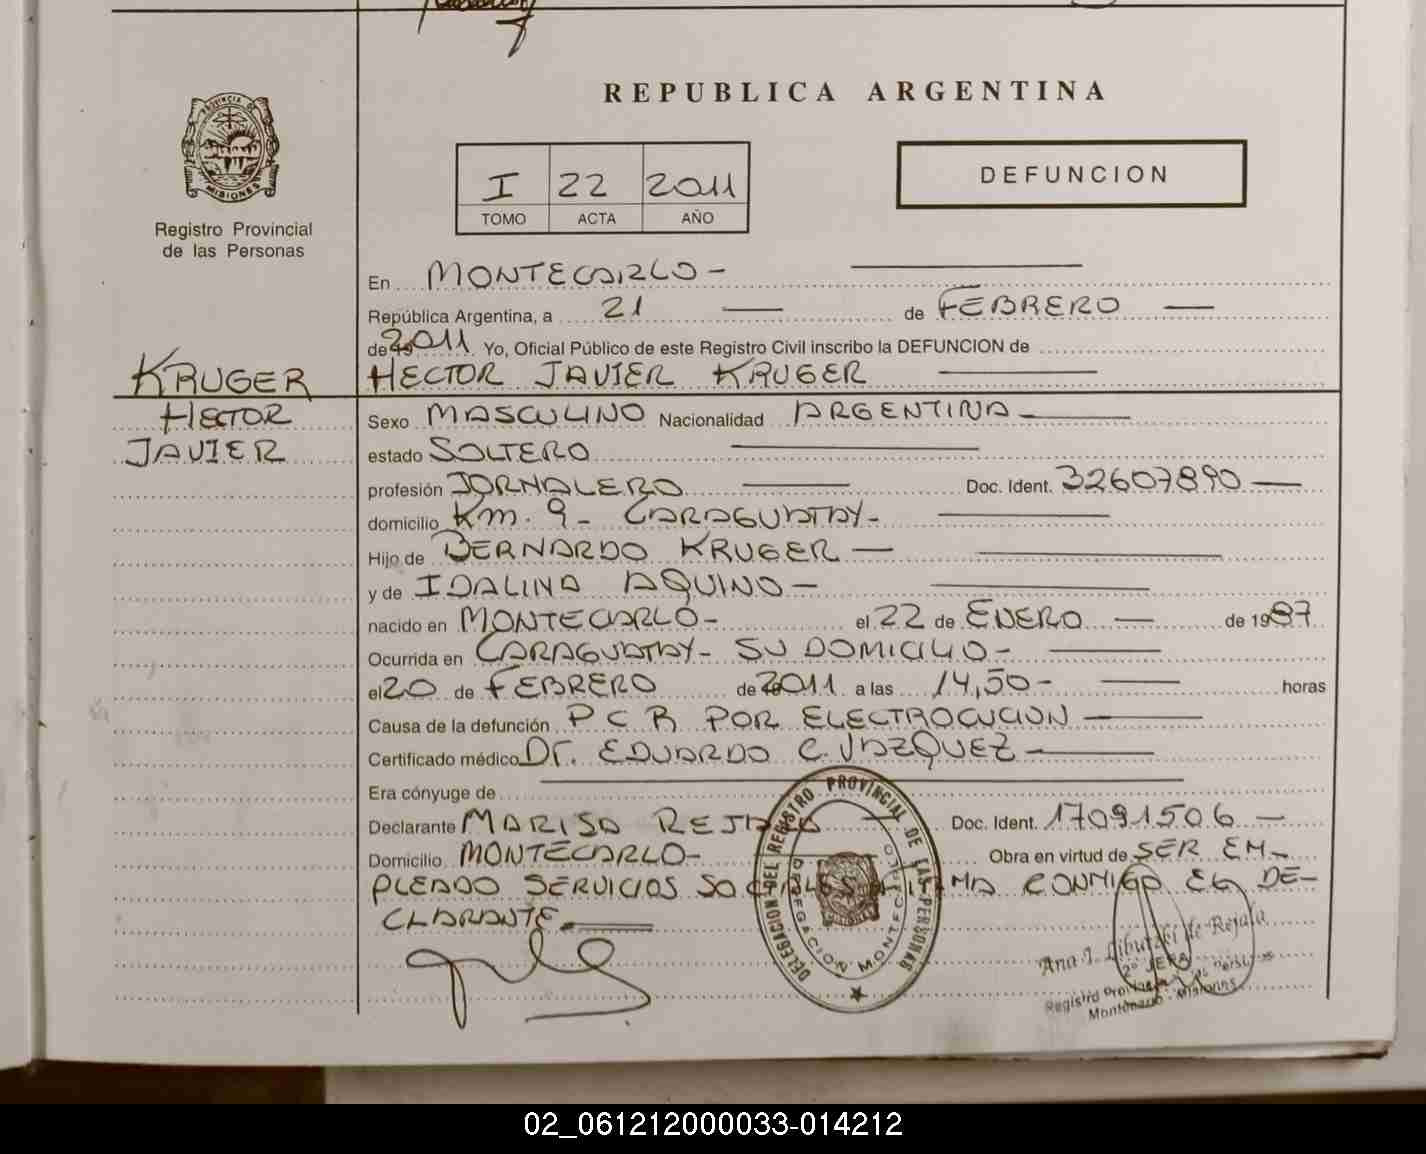 REPUBLICA ARGENTINA
PROVINCIA DE
MISIONES
Registro Provincial
de las Personas
I 22 2011
TOMO ACTA AÑO
DEFUNCION
En MONTECARLO -
República Argentina, a 21 de FEBRERO
de 2011. Yo, Oficial Público de este Registro Civil inscribo la DEFUNCION de
HECTOR JAVIER KRUGER
KRUGER
HECTOR
JAVIER
Sexo MASCULINO Nacionalidad ARGENTINA
estado SOLTERO
profesión JORNALERO Doc. Ident. 32607890
domicilio Km. 9 - CARAGUATAY -
Hijo de BERNARDO KRUGER
y de IDALINA AQUINO -
nacido en MONTECARLO - el 22 de ENERO de 1987
Ocurrida en CARAGUATAY - SU DOMICILIO -
el 20 de FEBRERO de 2011 a las 14,50 - horas
Causa de la defunción P C R POR ELECTROCUCION
Certificado médico Dr. EDUARDO C. VAZQUEZ
Era cónyuge de
Declarante MARISA REJALA Doc. Ident. 17091506
Domicilio MONTECARLO - Obra en virtud de SER EM-
PLEADO SERVICIOS SOCIALES FIRMA CONMIGO EL DE-
CLARANTE.
DELEGACION DEL REGISTRO PROVINCIAL DE LAS PERSONAS
DELEGACION MONTECARLO
Ana J. de Rejala
2º JEFA
Registro Provincial de las Personas
Montecarlo - Misiones
02_061212000033-014212